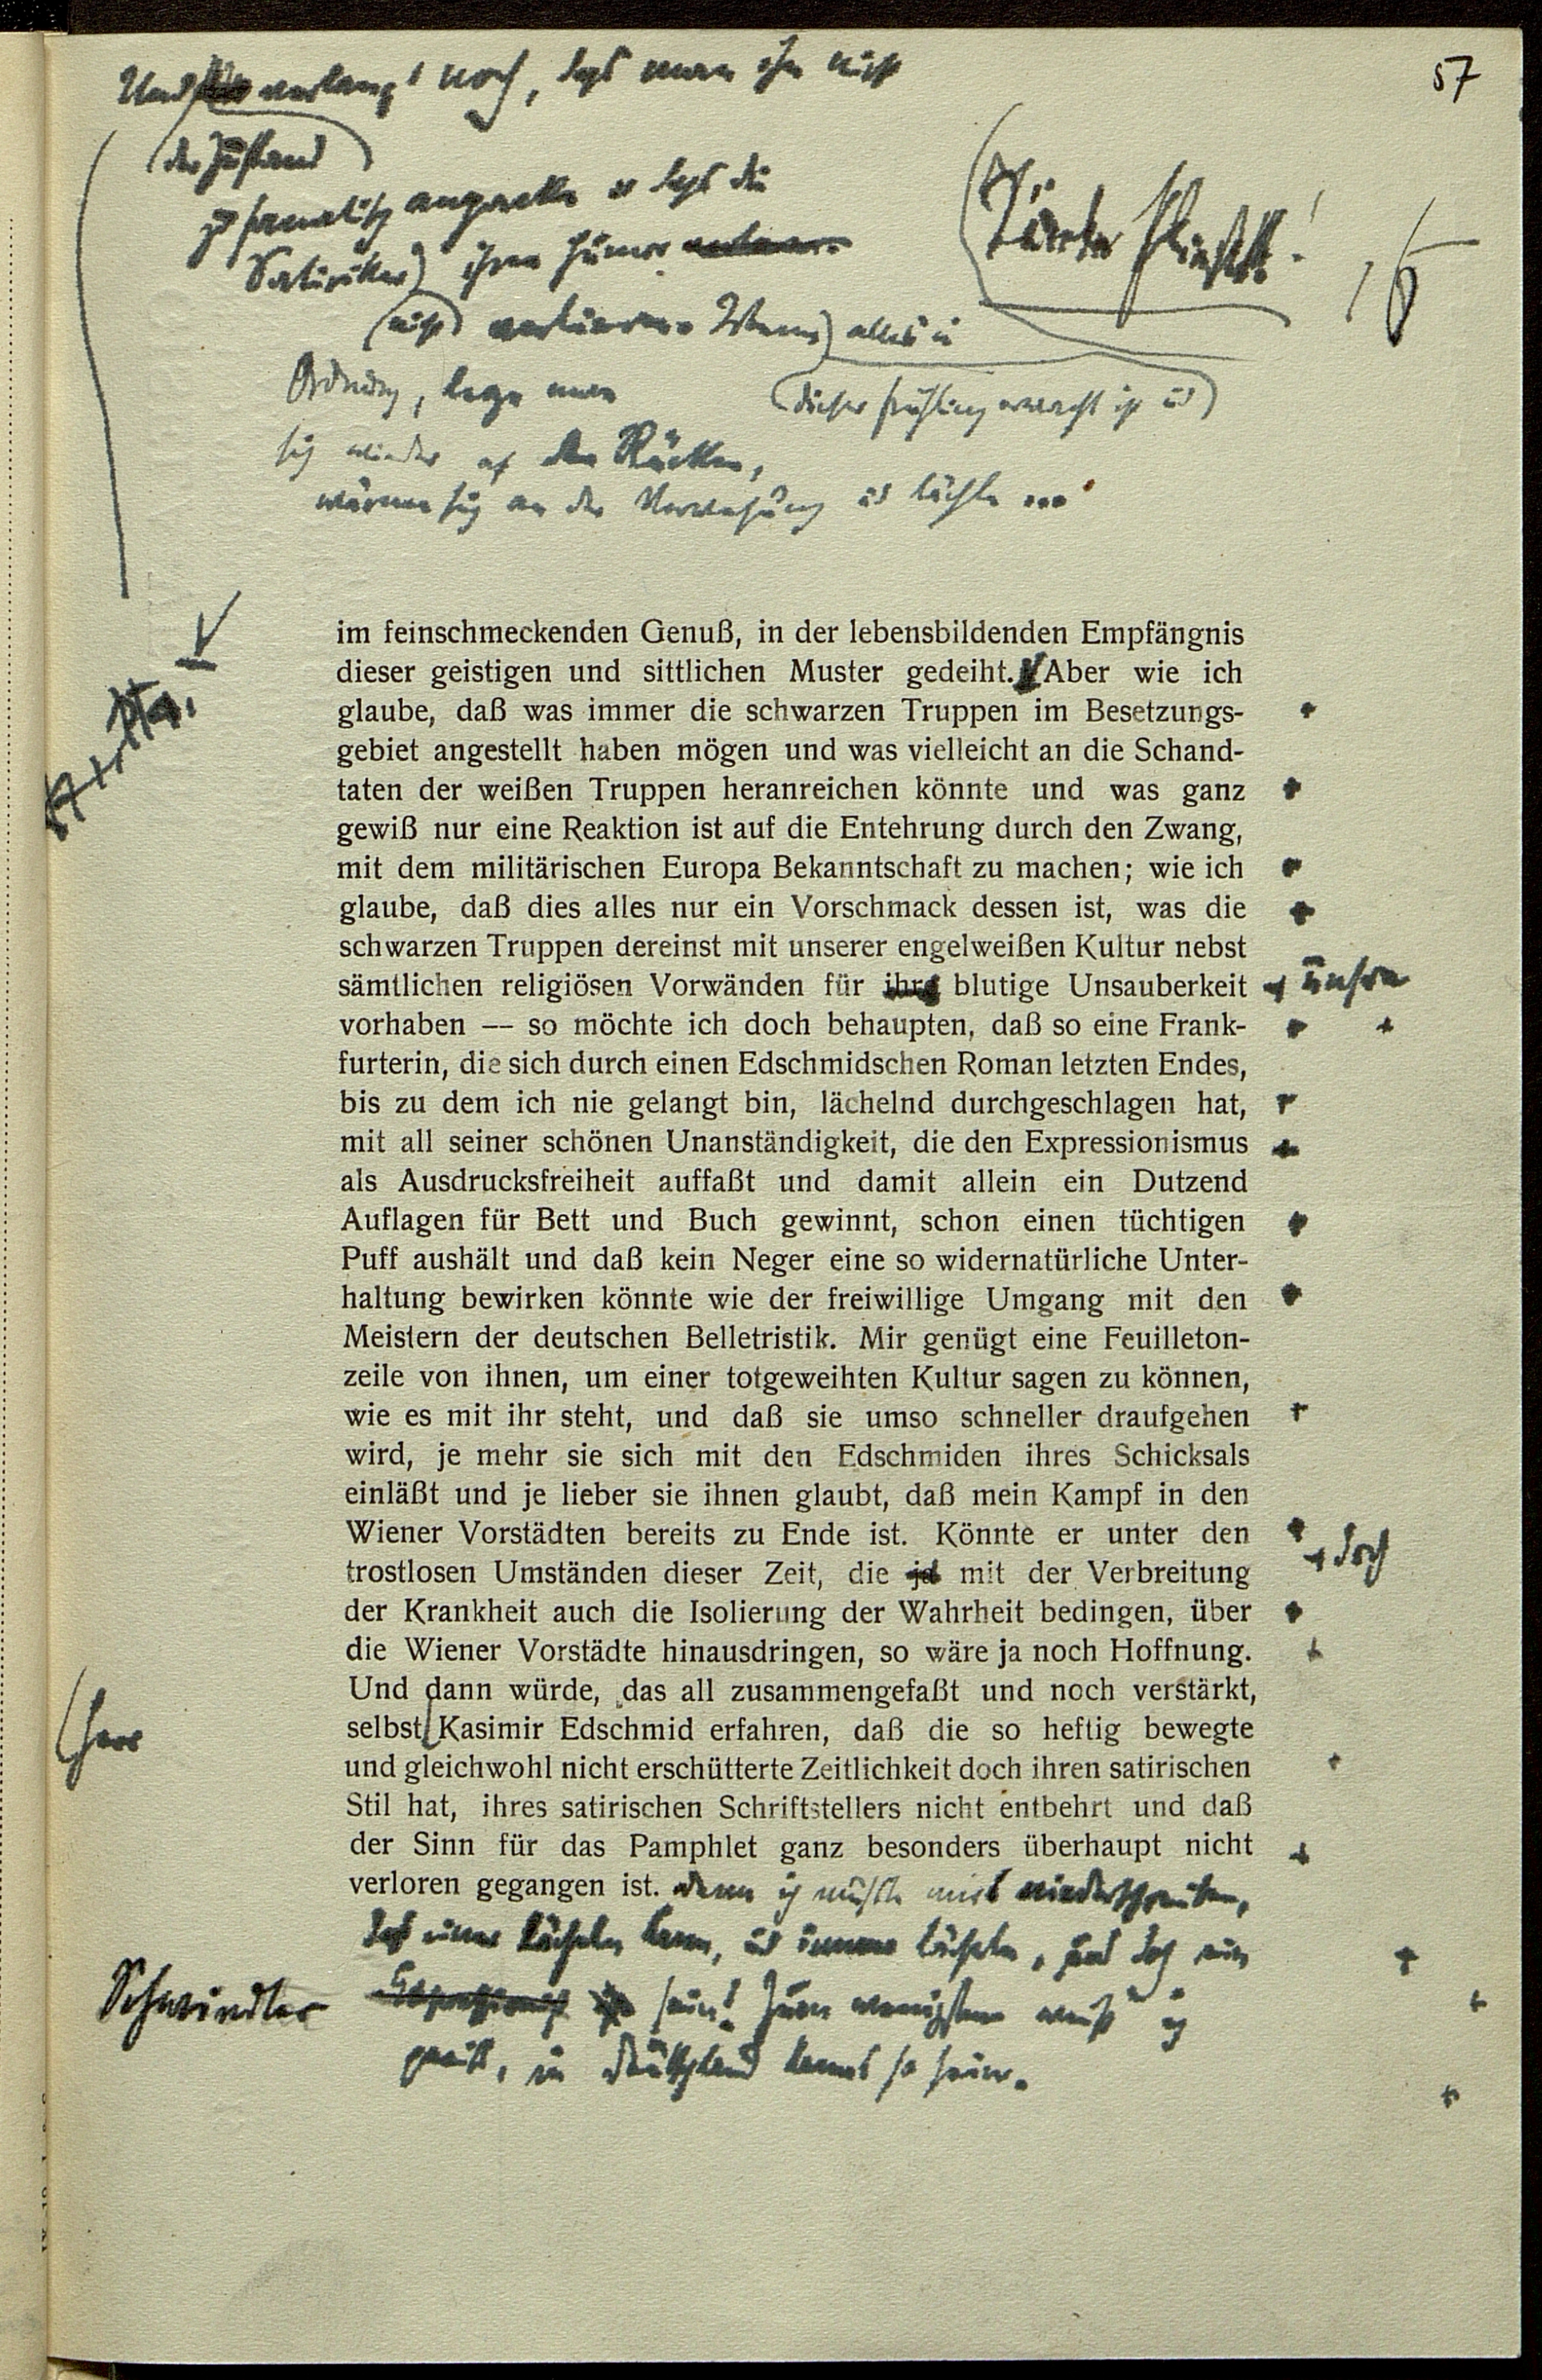 57
Und verlangt noch, daß man ihn nicht
der Zustand
so fanatisch anpacke u daß die
Satiriker ihren Humor
nicht verlieren. Wenn alles in
dieser Frühling erwacht ist ud
Ordnung, lege man
sich wieder auf den Rücken,
wärme sich an der Verwesung ud lächle ...
im feinschmeckenden Genuß, in der lebensbildenden Empfängnis
dieser geistigen und sittlichen Muster gedeiht. Aber wie ich
glaube, daß was immer die schwarzen Truppen im Besetzungs-
gebiet angestellt haben mögen und was vielleicht an die Schand-
taten der weißen Truppen heranreichen könnte und was ganz
gewiß nur eine Reaktion ist auf die Entehrung durch den Zwang,
mit dem militärischen Europa Bekanntschaft zu machen; wie ich
glaube, daß dies alles nur ein Vorschmack dessen ist, was die
schwarzen Truppen dereinst mit unserer engelweißen Kultur nebst
sämtlichen religiösen Vorwänden für ihre blutige Unsauberkeit unsre
vorhaben — so möchte ich doch behaupten, daß so eine Frank-
furterin, die sich durch einen Edschmidschen Roman letzten Endes,
bis zu dem ich nie gelangt bin, lächelnd durchgeschlagen hat,
mit all seiner schönen Unanständigkeit, die den Expressionismus
als Ausdrucksfreiheit auffaßt und damit allein ein Dutzend
Auflagen für Bett und Buch gewinnt, schon einen tüchtigen
Puff aushält und daß kein Neger eine so widernatürliche Unter-
haltung bewirken könnte wie der freiwillige Umgang mit den
Meistern der deutschen Belletristik. Mir genügt eine Feuilleton-
zeile von ihnen, um einer totgeweihten Kultur sagen zu können,
wie es mit ihr steht, und daß sie umso schneller draufgehen
wird, je mehr sie sich mit den Edschmiden ihres Schicksals
einläßt und je lieber sie ihnen glaubt, daß mein Kampf in den
Wiener Vorstädten bereits zu Ende ist. Könnte er unter den
trostlosen Umständen dieser Zeit, die ja mit der Verbreitung doch
der Krankheit auch die Isolierung der Wahrheit bedingen, über
die Wiener Vorstädte hinausdringen, so wäre ja noch Hoffnung.
Und dann würde, das all zusammengefaßt und noch verstärkt,
Herr selbst Kasimir Edschmid erfahren, daß die so heftig bewegte
und gleichwohl nicht erschütterte Zeitlichkeit doch ihren satirischen
Stil hat, ihres satirischen Schriftstellers nicht entbehrt und daß
der Sinn für das Pamphlet ganz besonders überhaupt nicht
verloren gegangen ist. Denn ich müßte mirs niederschreiben,
daß einer lächeln kann, ud immer lächeln, und doch ein
Schwindler Expressionist sein! Zum wenigsten weiß ich
gewiß, in Deutschland kanns so sein.